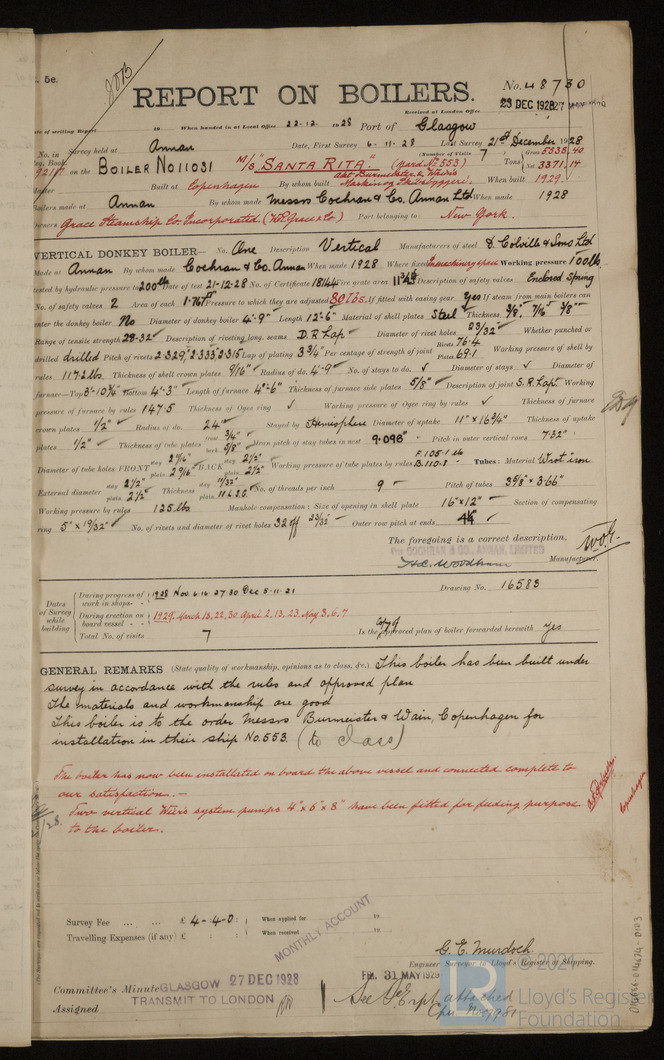 5e.
REPORT ON BOILERS.
No. 48730
Received at London Office
23 DEC 1928
Date of writing Report 19 When handed in at Local Office 22.12. 1928 Port of Glasgow
No. in Survey held at Annan Date, First Survey 6-11-28 Last Survey 21st December 1928
Reg. Book. (Number of Visits 7)
on the BOILER No 11031 M/S "SANTA RITA." (Yard No 553) Tons Gross Net 3371.14
Built at Copenhagen By whom built Akt Burmeister & Wain's Maskin og Skibsbyggeri When built 1929
Boilers made at Annan By whom made Messrs Cochran & Co. Annan Ltd When made 1928
Owners Grace Steamship Co. Incorporated. (W.R. Grace & Co) Port belonging to New York.
VERTICAL DONKEY BOILER— No. One Description Vertical Manufacturers of steel D. Colville & Sons Ltd
Made at Annan By whom made Cochran & Co. Annan When made 1928 Where fixed In machinery space Working pressure 100 lb
tested by hydraulic pressure to 200 lb Date of test 21-12-28 No. of Certificate 18144 Fire grate area Description of safety valves Enclosed Spring
No. of safety valves 2 Area of each 1.767 Pressure to which they are adjusted 80 lbs. If fitted with easing gear Yes If steam from main boilers can
enter the donkey boiler No Diameter of donkey boiler 4'-9" Length 12'-6" Material of shell plates Steel Thickness 3/8" 7/16" 3/8"
Range of tensile strength 28-32 Description of riveting long. seams D.R Lap Diameter of rivet holes 23/32" Whether punched or
drilled drilled Pitch of rivets 2.329, 2.333, 2.316 Lap of plating 3 3/4 Per centage of strength of joint Rivets 76.4 Plates 69.1 Working pressure of shell by
rules 117.2 lbs. Thickness of shell crown plates 9/16" Radius of do. 4'-9" No. of stays to do. ✓ Diameter of stays ✓ Diameter of
furnace—Top 3'-10 3/4" Bottom 4'-3" Length of furnace 4'-6" Thickness of furnace side plates 5/8" Description of joint S.R. Lap Working
pressure of furnace by rules 147.5 Thickness of Ogee ring ✓ Working pressure of Ogee ring by rules ✓ Thickness of furnace
crown plates 1/2" Radius of do. 24" Stayed by Hemisphere Diameter of uptake 11" x 16 3/4" Thickness of uptake
plates 1/2" Thickness of tube plates front 3/4" back 5/8" Mean pitch of stay tubes in nest 9.098" Pitch in outer vertical rows 7.32"
Diameter of tube holes FRONT stay 2 9/16" plain 2 9/16" BACK stay 2 1/2" plain 2 1/2" Working pressure of tube plates by rules F. 105.1 lb B. 110.8 Tubes: Material Wrot iron
External diameter stay 2 1/2" plain 2 1/2" Thickness stay 11/32" plain 11 L.S.G No. of threads per inch 9 Pitch of tubes 3 5/8" x 3.66"
Working pressure by rules 125 lbs Manhole compensation: Size of opening in shell plate 16" x 12" Section of compensating
ring 5" x 19/32" No. of rivets and diameter of rivet holes 32 off 23/32" Outer row pitch at ends
The foregoing is a correct description,
For COCHRAN & CO., ANNAN, LIMITED
Manufacturer.
Dates of Survey while building
During progress of work in shops - - 1928 Nov. 6.16 27 30 Dec 5.11.21 Drawing No. 16583
During erection on board vessel - - 1929. March 13, 22, 30 April 2, 13, 23. May 3, 6, 7
Total No. of visits 7 Is the copy of approved plan of boiler forwarded herewith yes
GENERAL REMARKS (State quality of workmanship, opinions as to class, &c.) This boiler has been built under
survey in accordance with the rules and approved plan
The materials and workmanship are good
This boiler is to the order Messrs Burmeister & Wain, Copenhagen for
installation in their ship No. 553. (to class)
The boiler has now been installed on board the above vessel and connected complete to
our satisfaction.—
Two vertical Weir's system pumps 4" x 5" x 8" have been fitted for feeding purpose
to the boiler.
Copenhagen
Survey Fee ... ... £ 4-4-0: When applied for 19
Travelling Expenses (if any) £ : : When received 19
MONTHLY ACCOUNT
G. E. Murdoch
Engineer Surveyor to Lloyd's Register of Shipping.
Committee's Minute GLASGOW 27 DEC 1928
FRI. 31 MAY 1929
TRANSMIT TO LONDON
Assigned
See attached
© 2021
LR
Lloyd's Register
Foundation